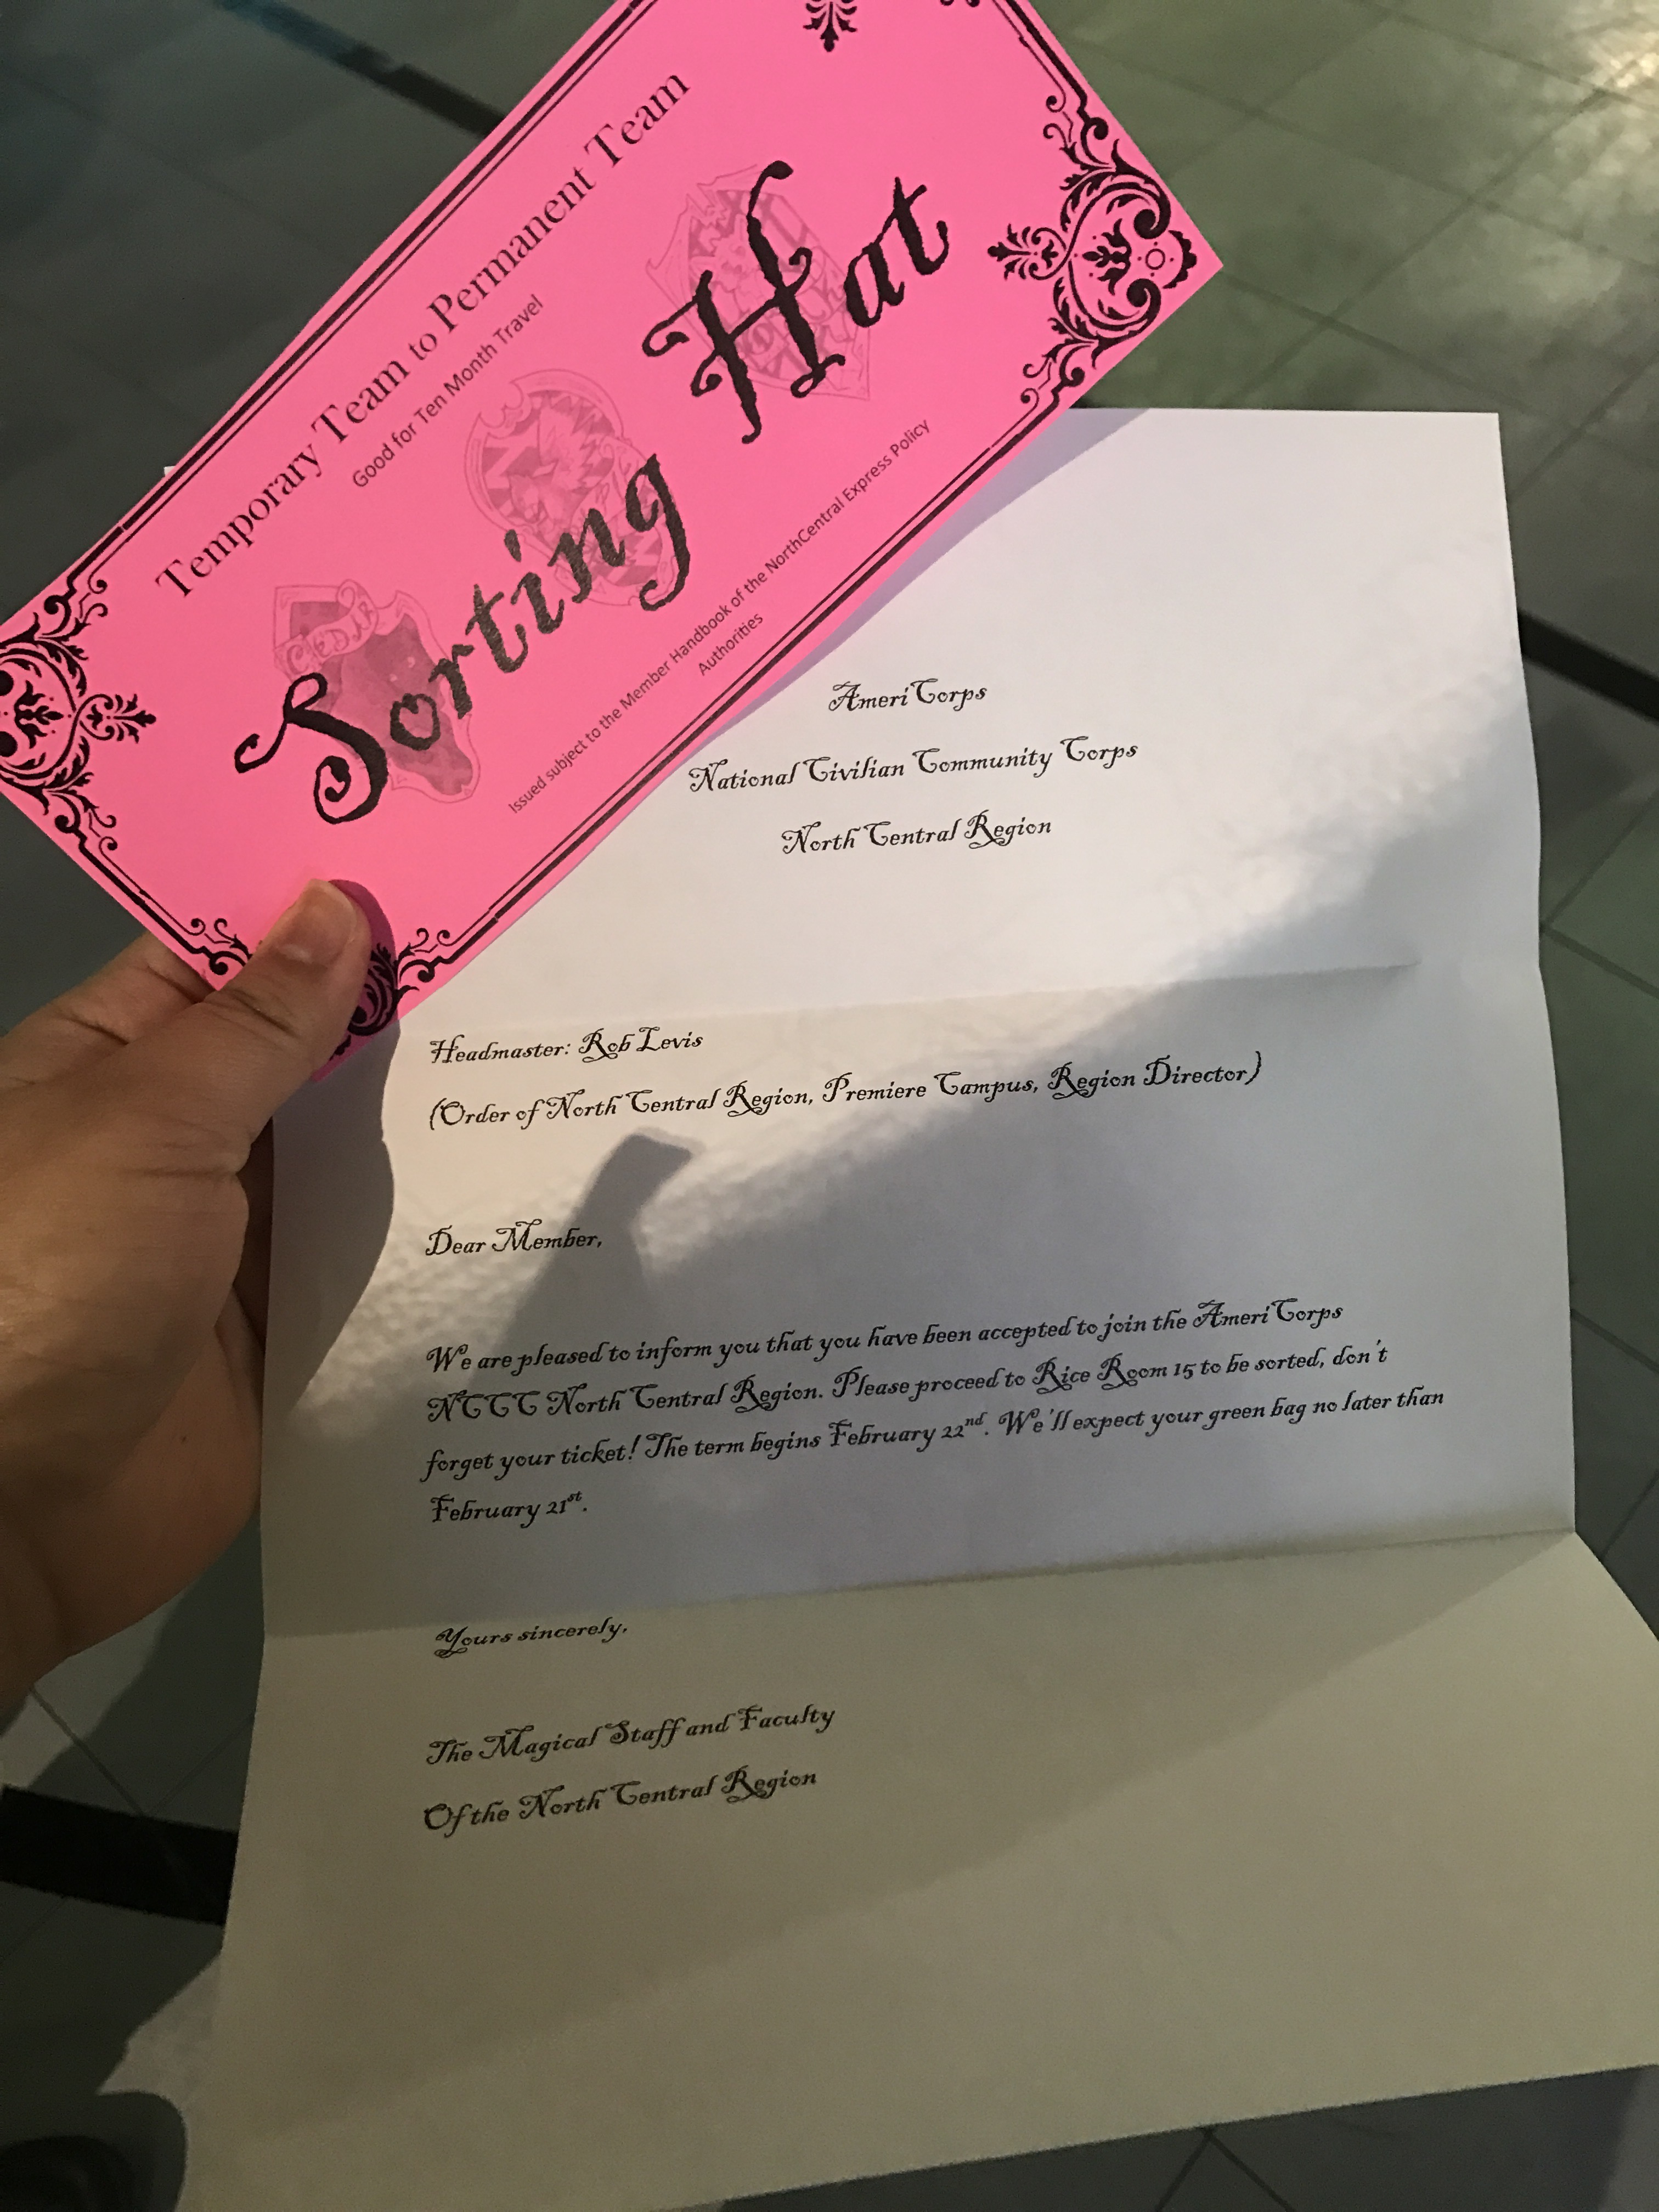 Temporary Team to Permanent Team
Good for Ten Month Travel
CEDAR
Sorting Hat
Issued subject to the Member Handbook of the NorthCentral Express Policy
Authorities
AmeriCorps
National Civilian Community Corps
North Central Region
Headmaster: Rob Levis
(Order of North Central Region, Premiere Campus, Region Director)
Dear Member,
We are pleased to inform you that you have been accepted to join the AmeriCorps
NCCC North Central Region. Please proceed to Rice Room 15 to be sorted, don't
forget your ticket! The term begins February 22nd. We'll expect your green bag no later than
February 21st.
Yours sincerely,
The Magical Staff and Faculty
Of the North Central Region